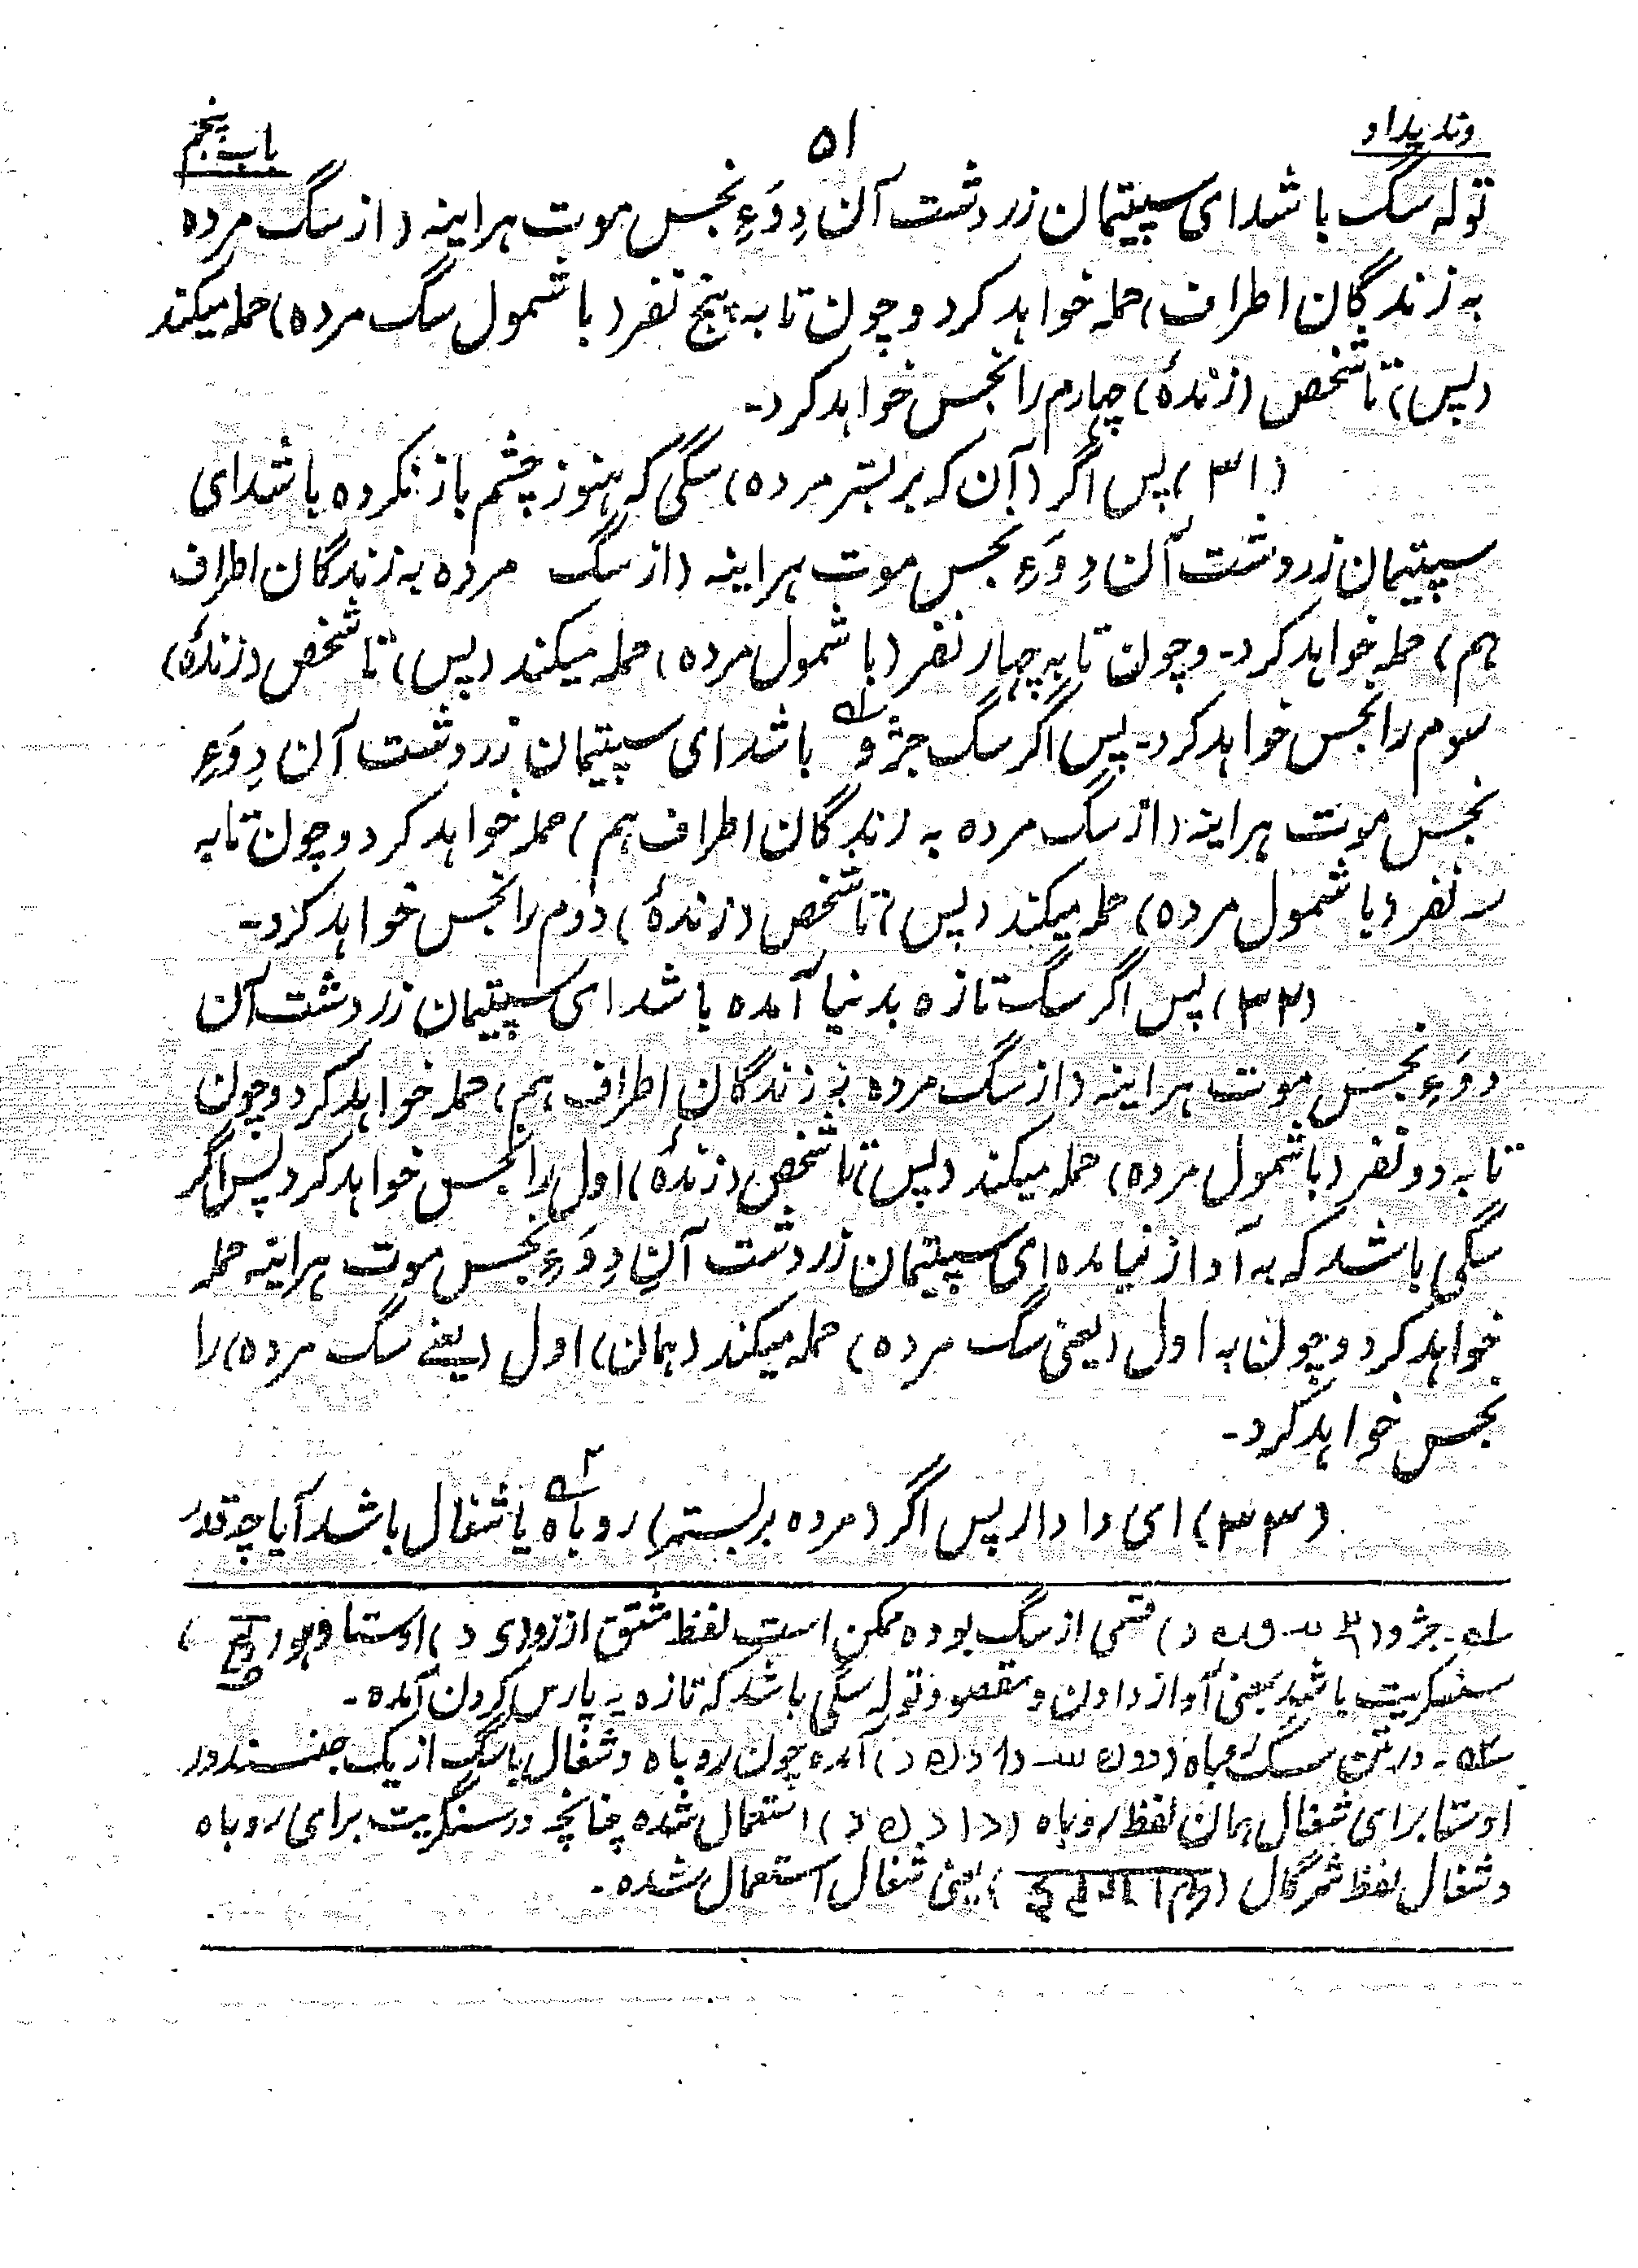 وندیداد
۵۱
باب پنجم
توله سگ باشد ای سپیتمان زردشت آن دِوَءِ نجس موت هراینه (از سگ مرده
به زندگان اطراف) حمله خواهد کرد و چون تا به پنج نفر (با شمول سگ مرده) حمله میکند
(پس) تا شخص (زندهٔ) چهارم را نجس خواهد کرد-
(۳۱) پس اگر (آن که بر بستر مرده) سگی که هنوز چشم باز نکرده باشد ای
سپیتمان زردشت آن دِوَءِ نجس موت هراینه (از سگ مرده به زندگان اطراف
هم) حمله خواهد کرد- و چون تا به چهار نفر (با شمول مرده) حمله میکند (پس) تا شخص (زندهٔ)
سوم را نجس خواهد کرد- پس اگر سگ جژو ۱ه باشد ای سپیتمان زردشت آن دِوَءِ
نجس موت هراینه (از سگ مرده به زندگان اطراف هم) حمله خواهد کرد و چون تا به
سه نفر (با شمول مرده) حمله میکند (پس) تا شخص (زندهٔ) دوم را نجس خواهد کرد-
(۳۲) پس اگر سگ تازه بدنیا آمده باشد ای سپیتمان زردشت آن
دِوَءِ نجس موت هراینه (از سگ مرده به زندگان اطراف هم) حمله خواهد کرد و چون
تا به دو نفر (با شمول مرده) حمله میکند (پس) تا شخص (زندهٔ) اول را نجس خواهد کرد پس اگر
سگی باشد که به آواز نیامده ای سپیتمان زردشت آن دِوَءِ نجس موت هراینه حمله
خواهد کرد و چون به اول (یعنی سگ مرده) حمله میکند (همان) اول (یعنی سگ مرده) را
نجس خواهد کرد-
(۳۳) ای دادار پس اگر (مرده بر بستر) روباه ۲ه یا شغال باشد آیا چقدر
۱ه- جژو ( ) قسمی از سگ بوده ممکن است لفظ مشتق از زو ( ) اوستا و هو ( )
سنسکریت باشد بمعنی آواز دادن و مقصود توله سگی باشد که تازه به پارس کردن آمده-
۲ه- در متن سگ روباه ( ) آمده چون روباه و شغال با سگ از یک جنسند و در
اوستا برای شغال همان لفظ روباه ( ) استعمال شده چنانچه در سنسکریت برای روباه
و شغال لفظ شرگال ( ) یعنی شغال استعمال شده-